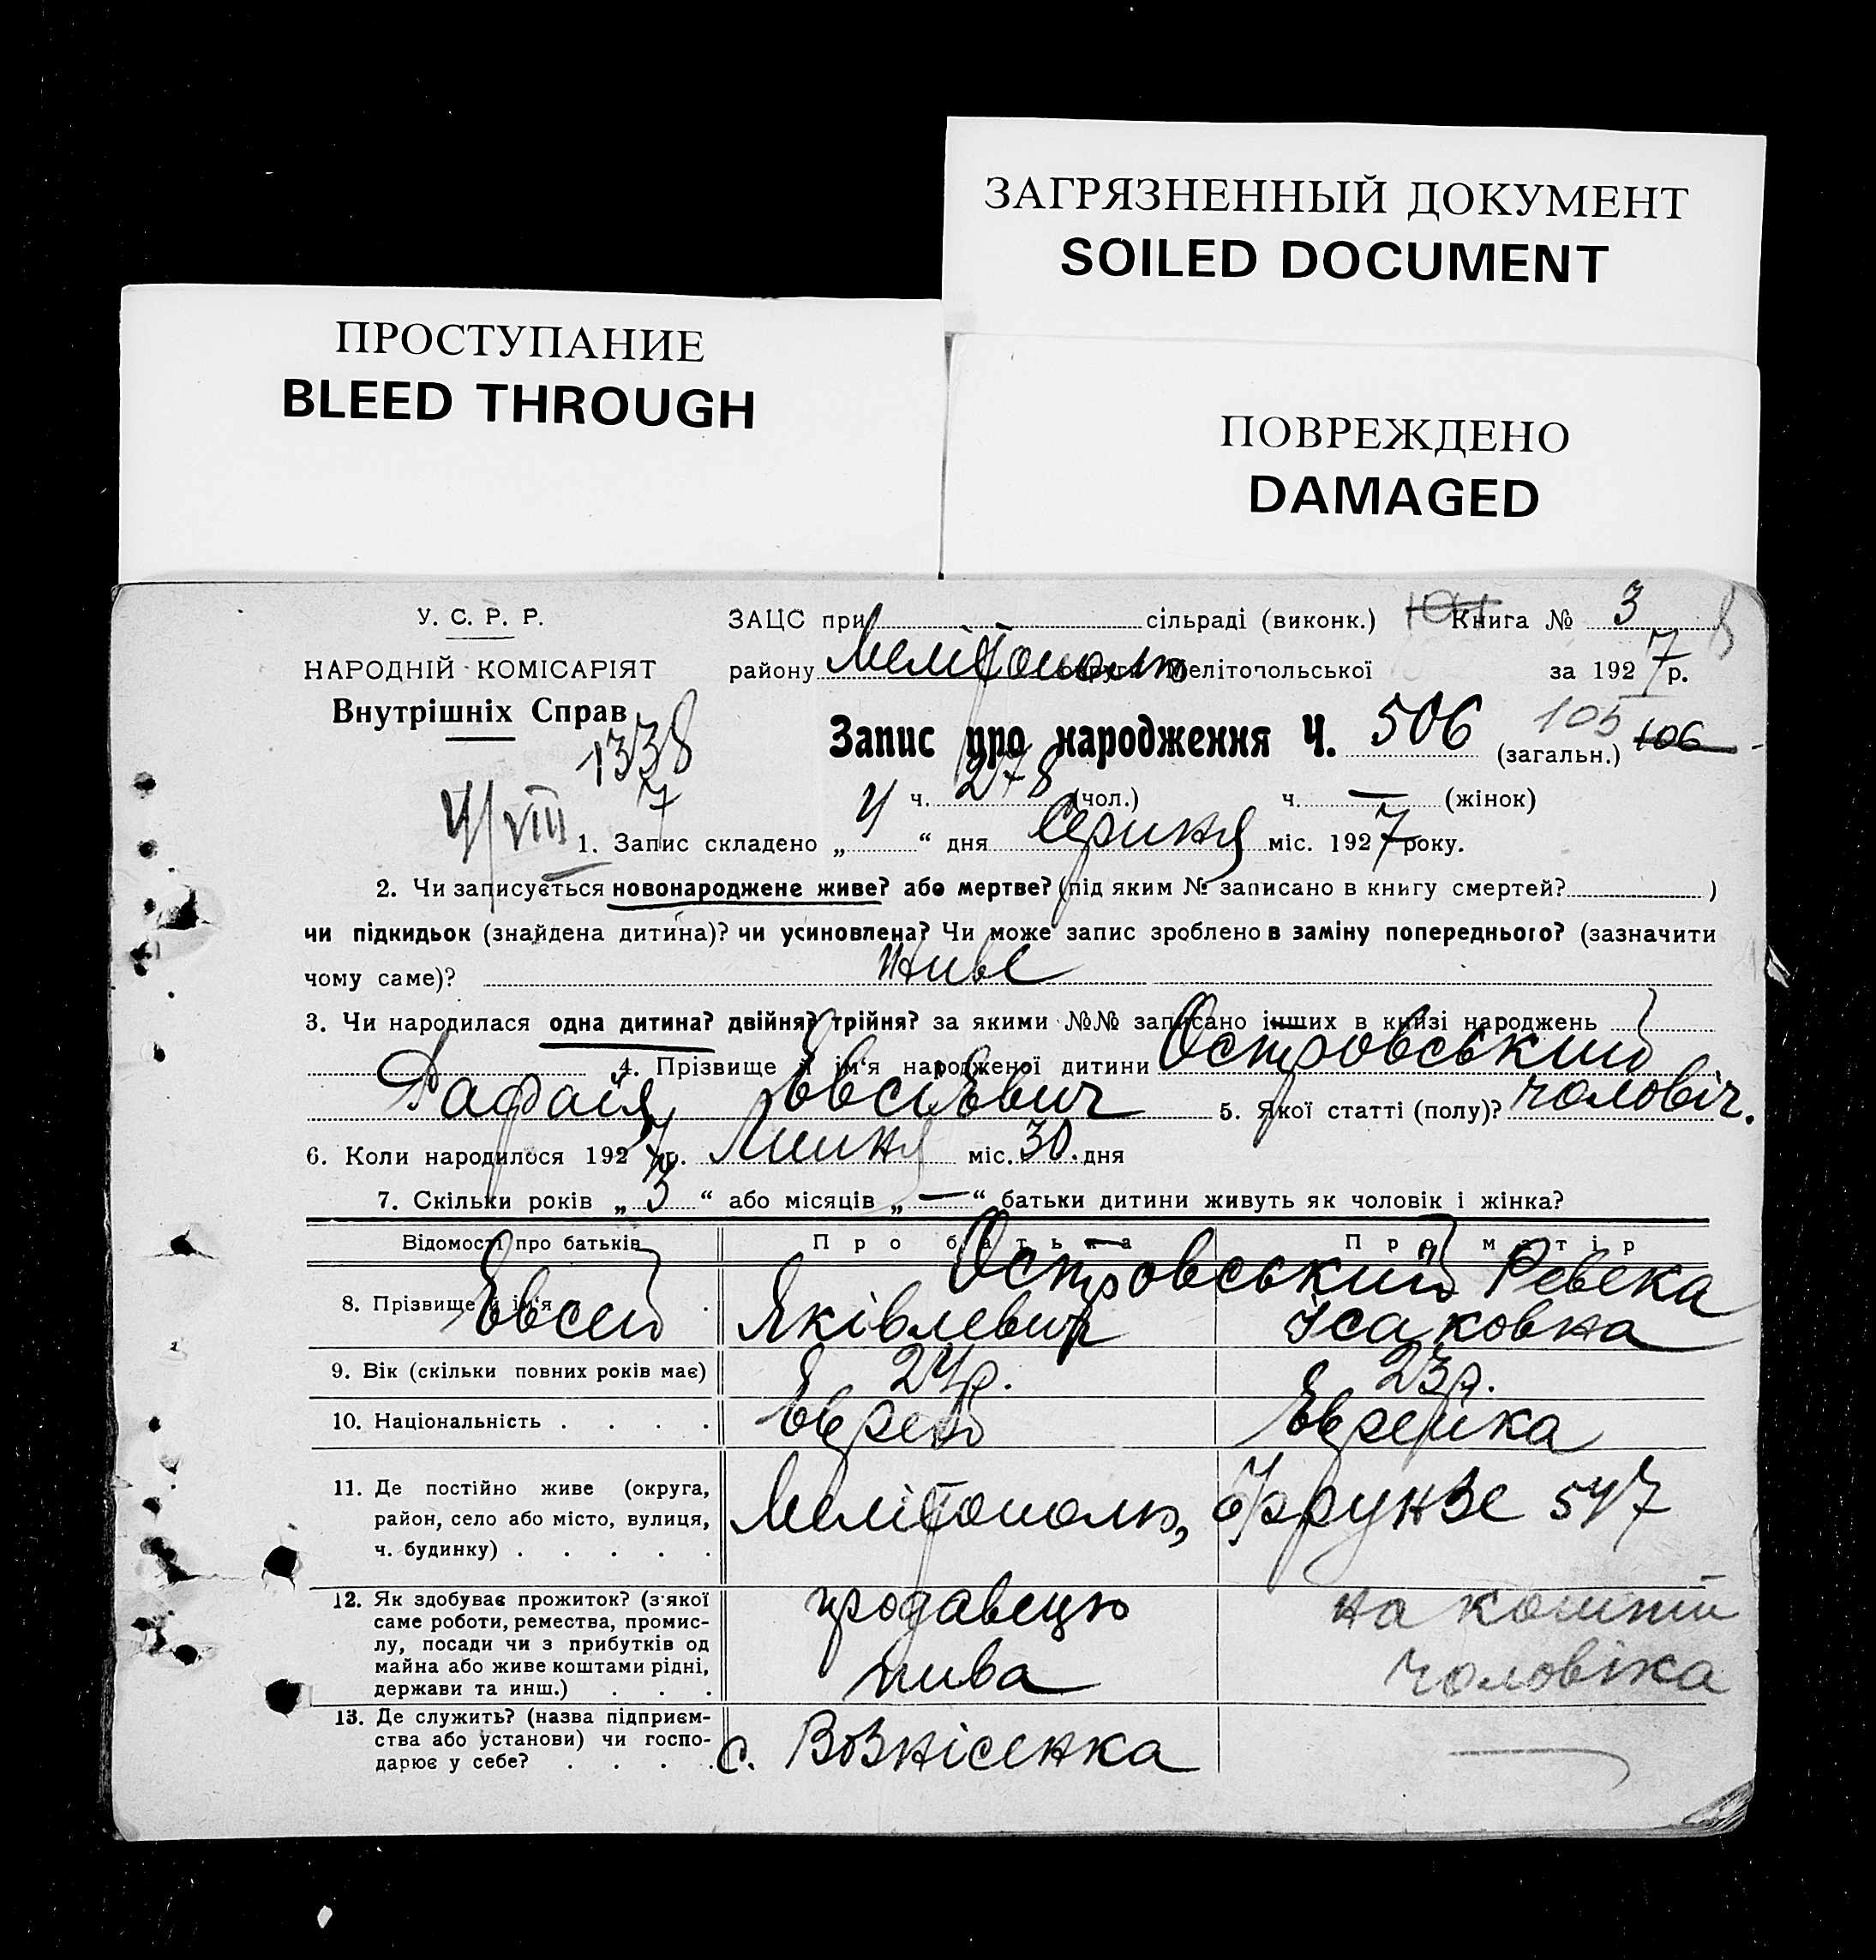 ЗАГРЯЗНЕННЫЙ ДОКУМЕНТ
SOILED DOCUMENT
ПРОСТУПАНИЕ
BLEED THROUGH
ПОВРЕЖДЕНО
DAMAGED
У. С. Р. Р.
НАРОДНІЙ КОМІСАРІЯТ
Внутрішніх Справ
1338
7
4/VIII
ЗАЦС при сільраді (виконк.) Книга № 3
району Мелітополь округи Мелітопольської за 1927 р.
Запис про народження Ч. 506 (загальн.) 105 106
ч. 278 (чол.) ч. — (жінок)
1. Запис складено „ 4 “ дня Серпня міс. 1927 року.
2. Чи записується новонароджене живе? або мертве? (під яким № записано в книгу смертей? )
чи підкидьок (знайдена дитина)? чи усиновлена? Чи може запис зроблено в заміну попереднього? (зазначити
чому саме)? живе
3. Чи народилася одна дитина? двійня? трійня? за якими №№ записано інших в книзі народжень
4. Прізвище й ім'я народженої дитини Островський
Рафаїл Євсієвич 5. Якої статті (полу)? чоловіч.
6. Коли народилося 1927 р. Липня міс. 30 дня
7. Скільки років „ 3 “ або місяців „ — “ батьки дитини живуть як чоловік і жінка?
Відомості про батьків Про батька Про матір
8. Прізвище й ім'я Островський Ревека
Євсей Яківлевич Ісаковна
9. Вік (скільки повних років має) 24 р. 23 р.
10. Національність Єврей Єврейка
11. Де постійно живе (округа,
район, село або місто, вулиця, Мелітополь, Фрунзе 547
ч. будинку)
12. Як здобуває прожиток? (з'якої
саме роботи, ремества, промис- продавець на кошти
лу, посади чи з прибутків од
майна або живе коштами рідні, пива чоловіка
держави та инш.)
13. Де служить? (назва підприєм-
ства або установи) чи госпо- с. Вознісенка —
дарює у себе?